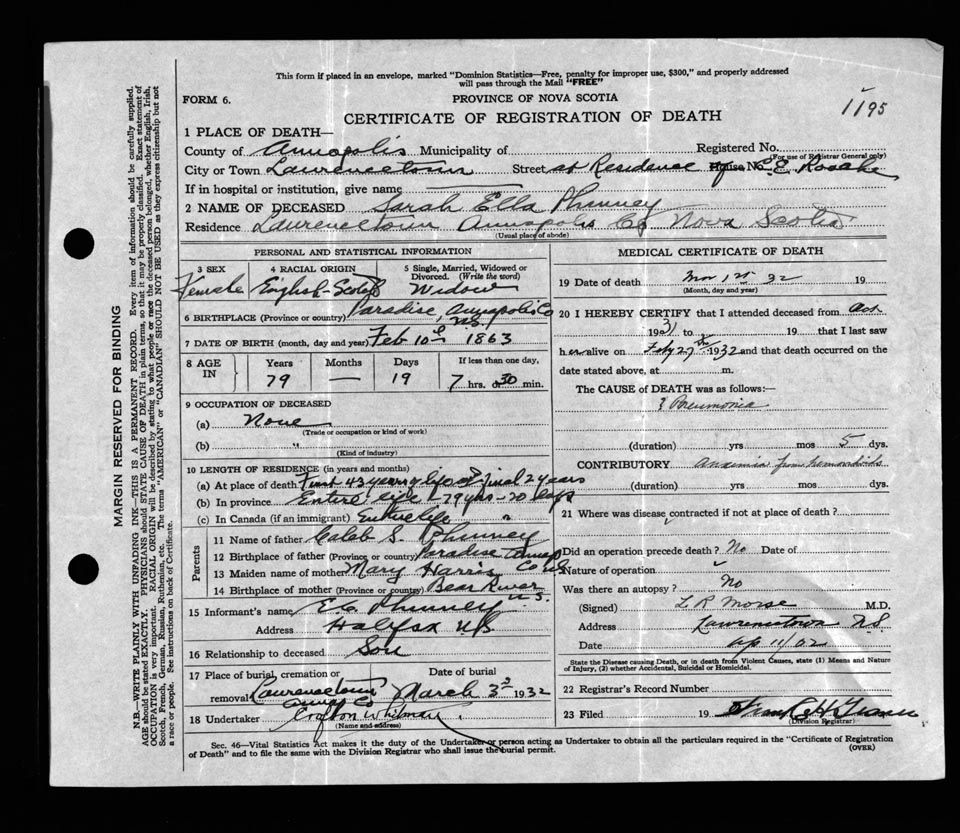 This form if placed in an envelope, marked "Dominion Statistics—Free, penalty for improper use, $300," and properly addressed
will pass through the Mail "FREE"
FORM 6.
PROVINCE OF NOVA SCOTIA
1195
CERTIFICATE OF REGISTRATION OF DEATH
1 PLACE OF DEATH—
County of Annapolis Municipality of Registered No.
(For use of Registrar General only)
City or Town Lawrencetown Street at Residence of House No. E.E. Roache
If in hospital or institution, give name
2 NAME OF DECEASED Sarah Ella Phinney
Residence Lawrencetown Annapolis Co Nova Scotia
(Usual place of abode)
PERSONAL AND STATISTICAL INFORMATION
3 SEX 4 RACIAL ORIGIN 5 Single, Married, Widowed or Divorced. (Write the word)
Female English-Scotch Widow
6 BIRTHPLACE (Province or country) Paradise, Annapolis Co N.S.
7 DATE OF BIRTH (month, day and year) Feb 10th 1863
8 AGE IN Years Months Days If less than one day,
79 — 19 7 hrs. or 30 min.
9 OCCUPATION OF DECEASED
(a) None
(Trade or occupation or kind of work)
(b) "
(Kind of industry)
10 LENGTH OF RESIDENCE (in years and months)
(a) At place of death First 43 years of life & final 2 years
(b) In province Entire life - 79 yrs - 20 days
(c) In Canada (if an immigrant) Entire life "
Parents
11 Name of father Caleb S. Phinney
12 Birthplace of father (Province or country) Paradise Annap Co N.S.
13 Maiden name of mother Mary Harris
14 Birthplace of mother (Province or country) Bear River N.S.
15 Informant's name E.C. Phinney
Address Halifax N.S
16 Relationship to deceased Son
17 Place of burial, cremation or removal Lawrencetown Annap Co
Date of burial March 3rd 1932
18 Undertaker Crofton Whitman
(Name and address)
MEDICAL CERTIFICATE OF DEATH
19 Date of death Mar 1st 32 19
(Month, day and year)
20 I HEREBY CERTIFY that I attended deceased from Oct
1931 to 19 that I last saw
her alive on Feby 27th 1932 and that death occurred on the
date stated above, at m.
The CAUSE of DEATH was as follows:—
Pneumonia
(duration) yrs mos 5 dys.
CONTRIBUTORY Anaemia from hemorrhoids
(duration) yrs mos dys.
21 Where was disease contracted if not at place of death?
Did an operation precede death? No Date of
Nature of operation
Was there an autopsy? No
(Signed) L R Morse M.D.
Address Lawrencetown N.S
Date Ap 11/32
State the Disease causing Death, or in death from Violent Causes, state (1) Means and Nature
of Injury, (2) whether Accidental, Suicidal or Homicidal.
22 Registrar's Record Number
23 Filed 19
(Division Registrar)
Sec. 46—Vital Statistics Act makes it the duty of the Undertaker or person acting as Undertaker to obtain all the particulars required in the "Certificate of Registration
of Death" and to file the same with the Division Registrar who shall issue the burial permit.
(OVER)
MARGIN RESERVED FOR BINDING
N.B.—WRITE PLAINLY WITH UNFADING INK—THIS IS A PERMANENT RECORD. Every item of information should be carefully supplied.
AGE should be stated EXACTLY. PHYSICIANS should STATE CAUSE OF DEATH in plain terms, so that it may be properly classified. Exact statement of
OCCUPATION is very important. RACIAL ORIGIN will be described by stating to what people or race the deceased person belonged, whether English, Irish,
Scotch, French, German, Russian, Ruthenian, etc. The terms "AMERICAN" or "CANADIAN" SHOULD NOT BE USED as they express citizenship but not
a race or people. See instructions on back of Certificate.